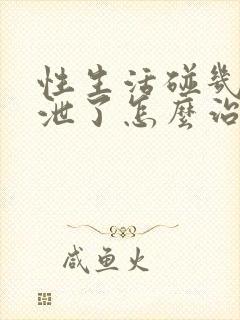 性生活碰幾
泄了怎麼治
咸鱼火